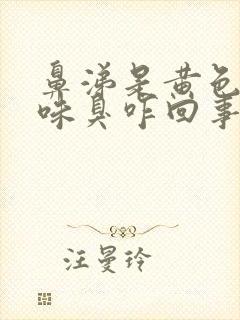 鼻涕是黄色
味臭咋回事
汪曼玲